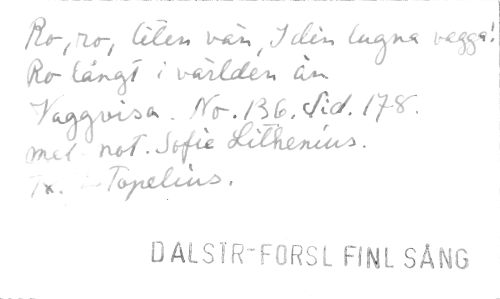 Ro, ro, liten vän, I din lugna vagga!
Ro långt i världen än
Vaggvisa. No. 136. Sid. 178.
mel. not. Sofie Lithenius.
Tx. Topelius.
DALSTR-FORSL FINL SÅNG